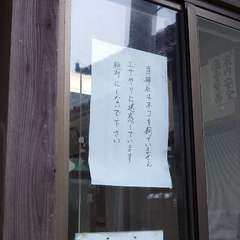 当神社はネコを飼っていません
エサやりに迷惑しています
絶対にしないで下さい